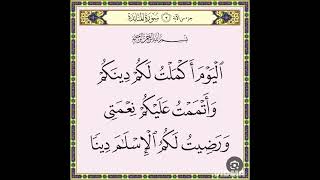 جزء من الآية ٣ سورة المائدة
بسم الله الرحمن الرحيم
ٱلْيَوْمَ أَكْمَلْتُ لَكُمْ دِينَكُمْ
وَأَتْمَمْتُ عَلَيْكُمْ نِعْمَتِى
وَرَضِيتُ لَكُمُ ٱلْإِسْلَٰمَ دِينًا